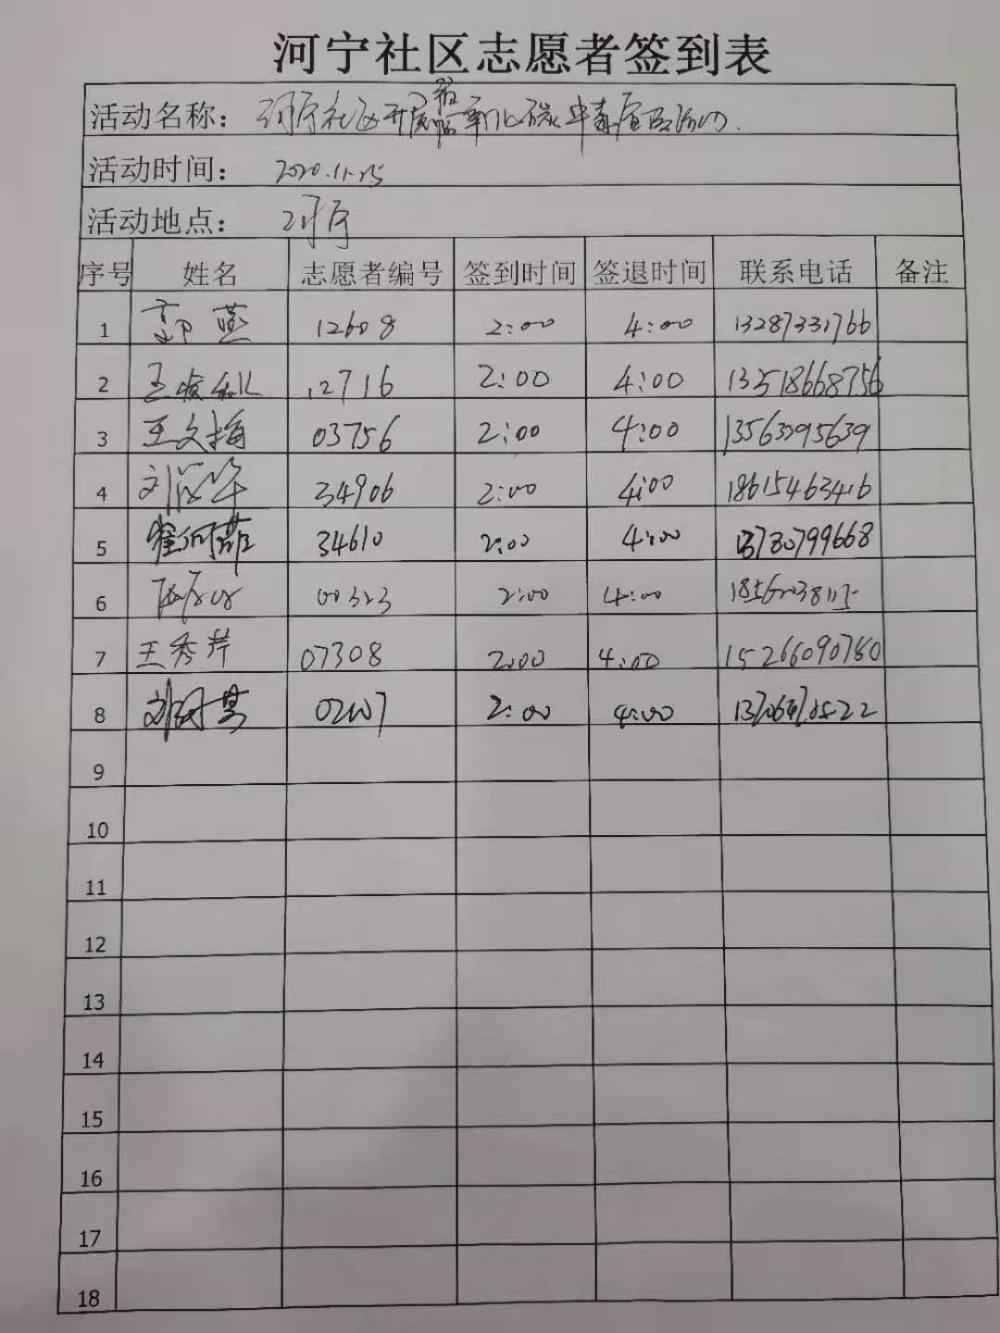 河宁社区志愿者签到表
活动名称： 河宁社区开展 氧化碳中毒
活动时间： 2020.11.25
活动地点： 河宁
序号 姓名 志愿者编号 签到时间 签退时间 联系电话 备注
1 郭燕 12608 2:00 4:00 13287331766
2 王俊 12716 2:00 4:00 13518668756
3 王文梅 03756 2:00 4:00 13563295639
4 刘 34906 2:00 4:00 18615463416
5 崔 34610 2:00 4:00 13780799668
6 00323 2:00 4:00
7 王秀芹 07308 2:00 4:00 15266090760
8 刘 2:00 4:00
9
10
11
12
13
14
15
16
17
18